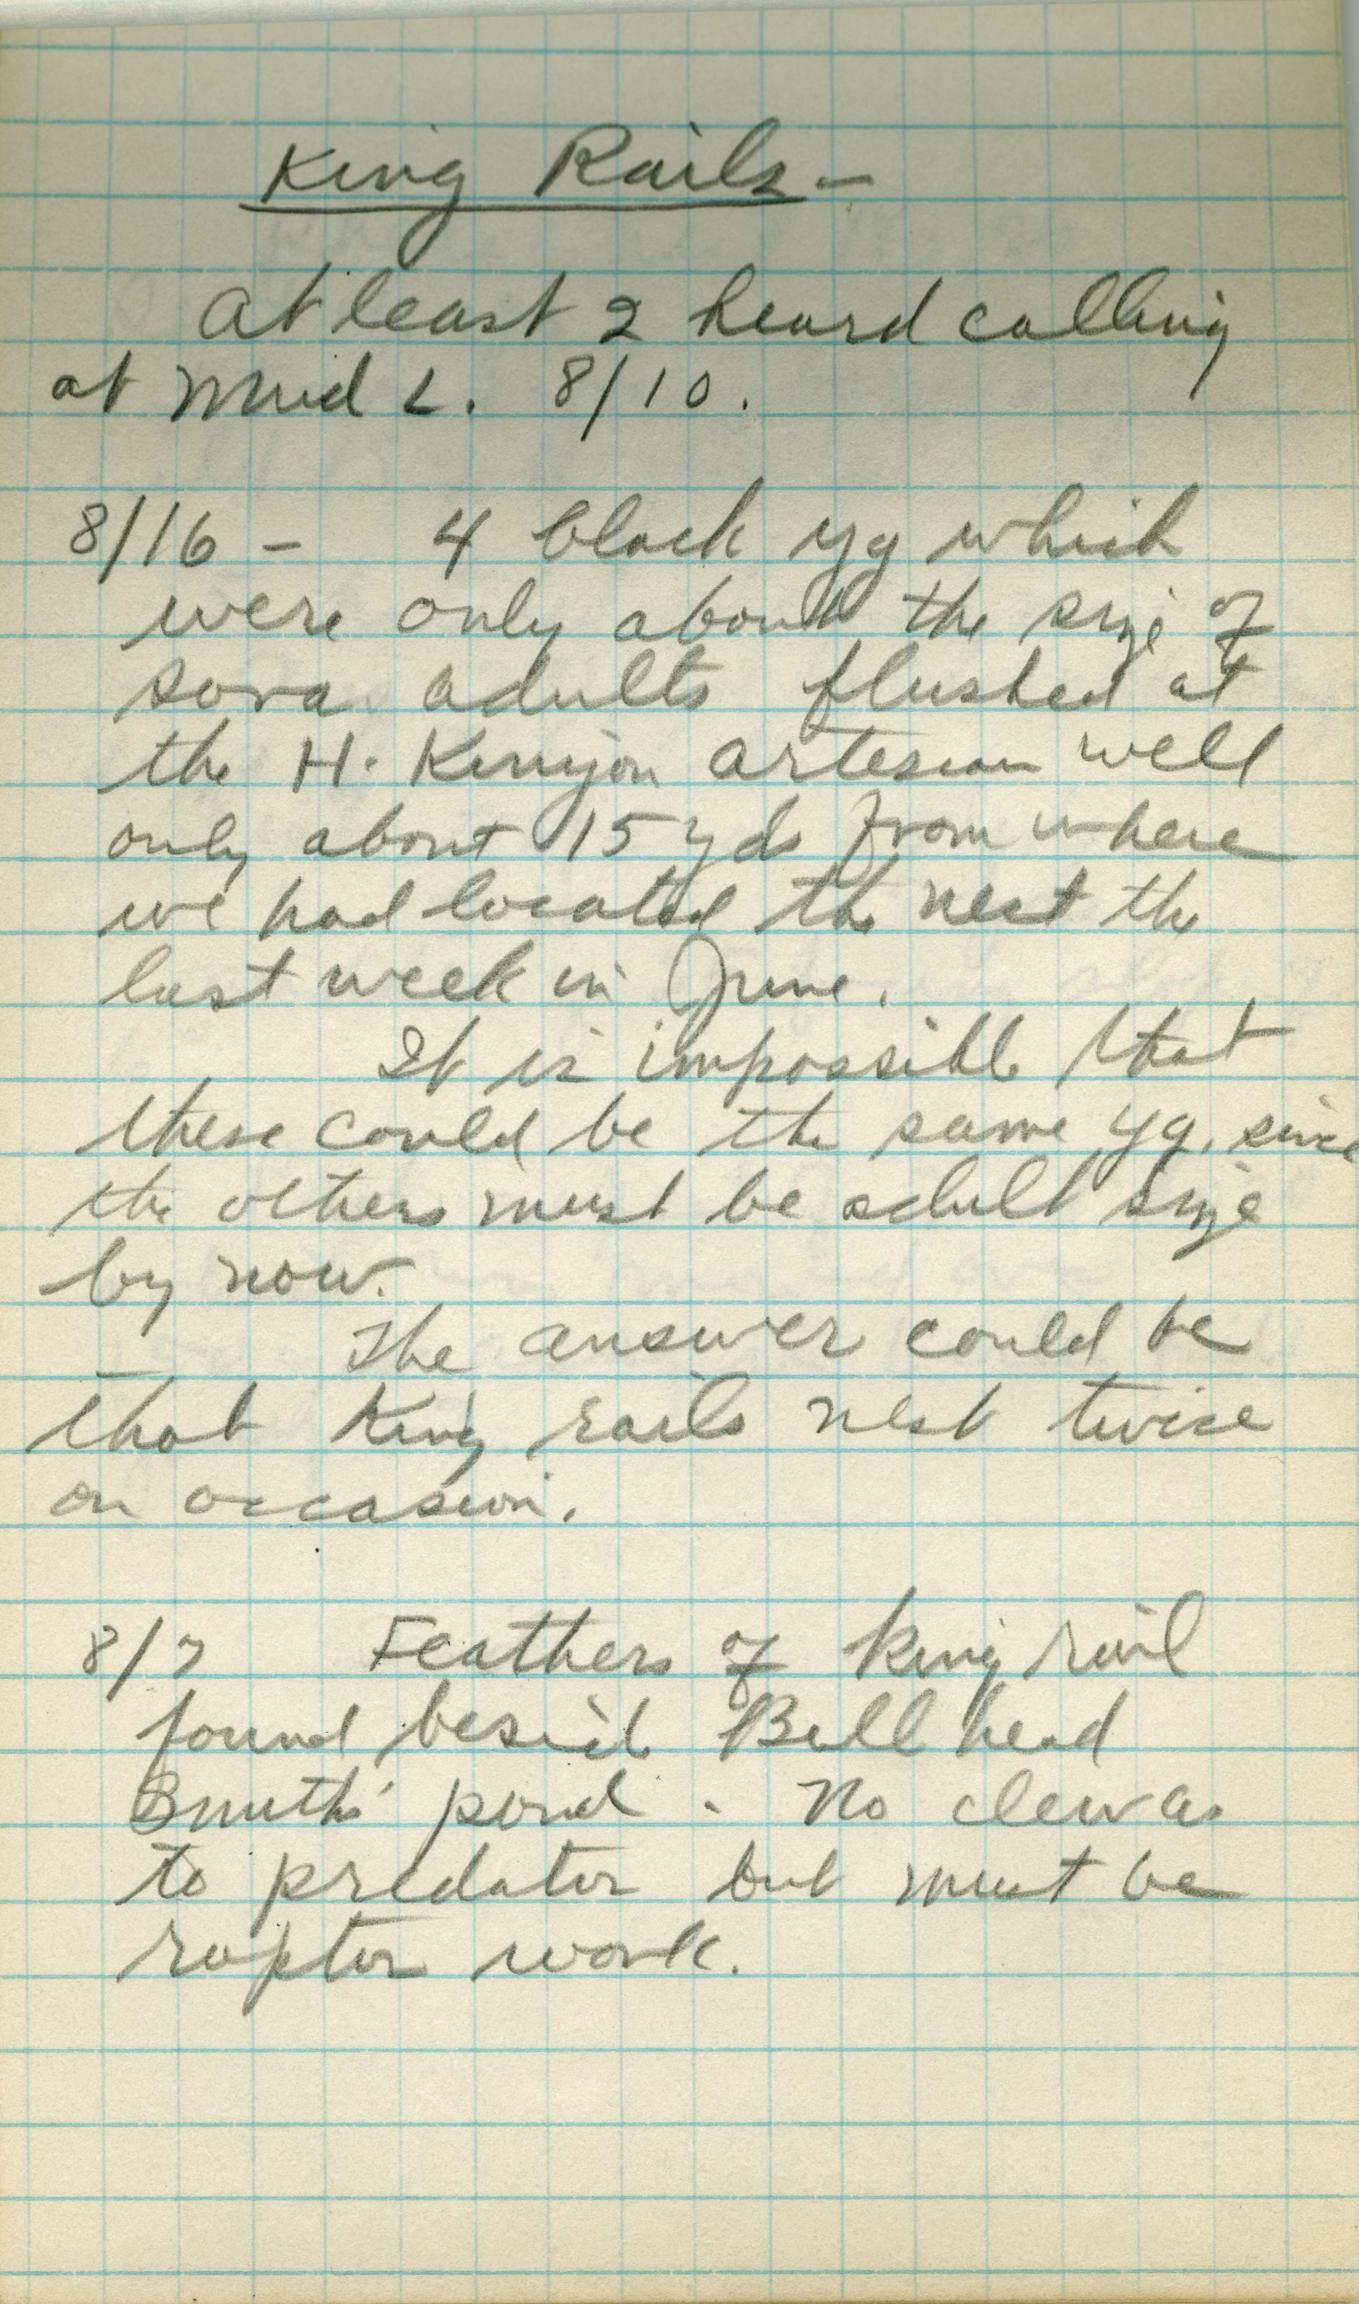 King Rails –
At least 2 heard calling
at Mud L. 8/10.
8/16 – 4 black yg which
were only about the size of
sora adults flushed at
the H. Kenyon artesian well
only about 15 yds from where
we had located the nest the
last week in June.
It is impossible that
these could be the same yg. since
the others must be adult size
by now.
The answer could be
that King rails nest twice
on occasion.
8/7 Feathers of king rail
found beside Bullhead
Smith's pond. No clew as
to predator but must be
raptor work.